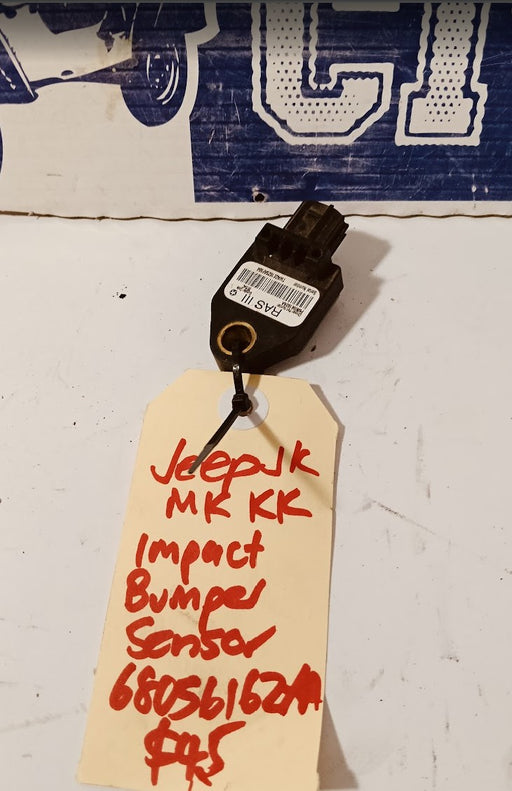 CI
RAS III
Jeep JK
MK KK
Impact
Bumper
Sensor
68056162AA
$45